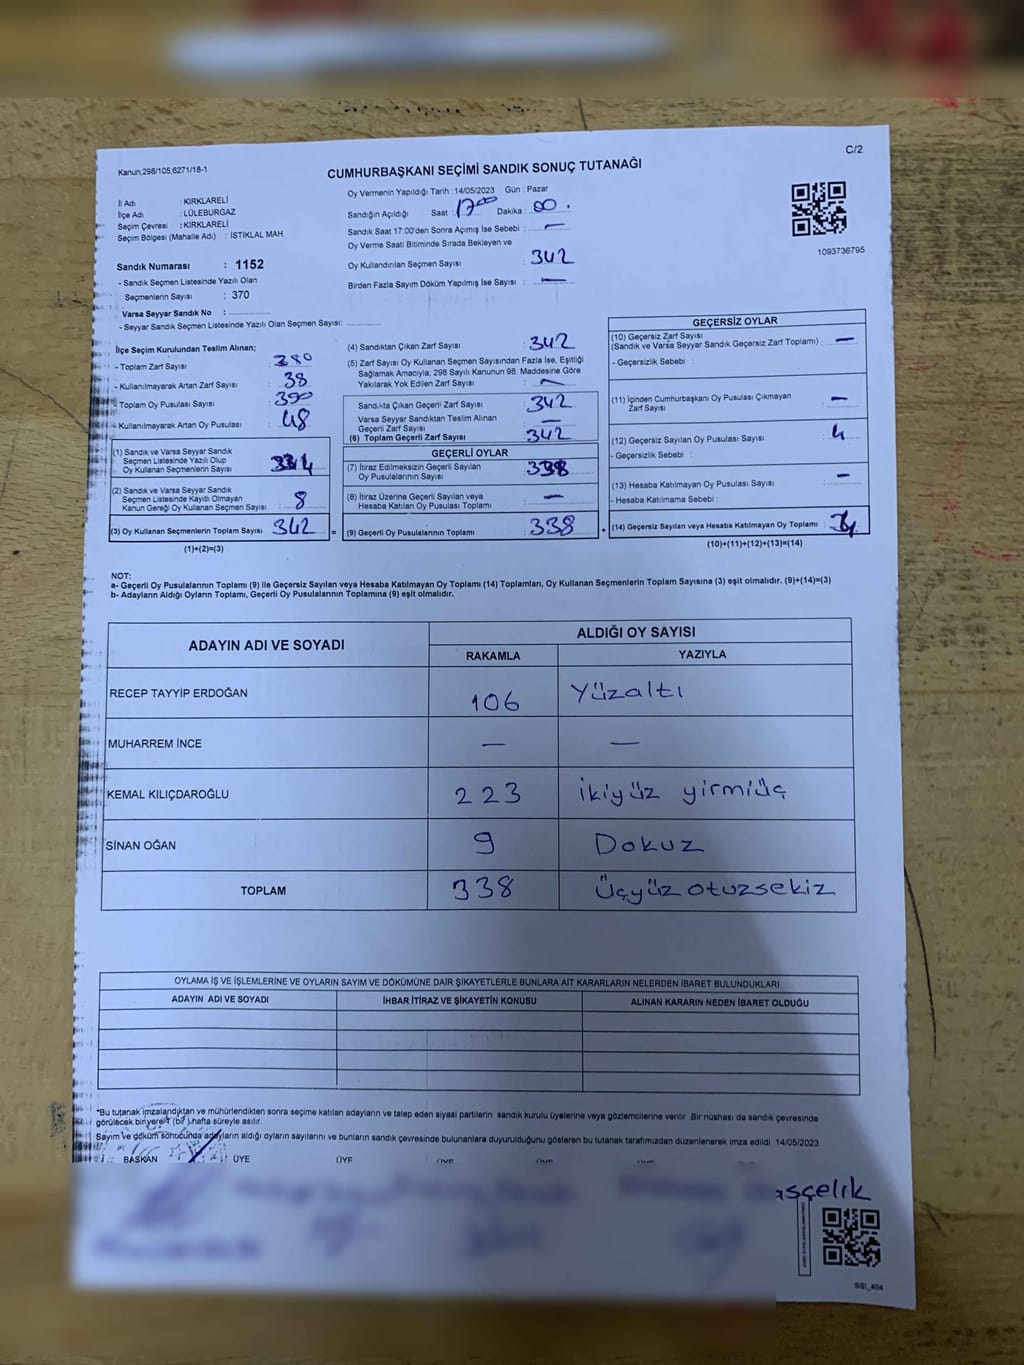 C/2
Kanun;298/105;6271/18-1
CUMHURBAŞKANI SEÇİMİ SANDIK SONUÇ TUTANAĞI
İl Adı : KIRKLARELİ
İlçe Adı : LÜLEBURGAZ
Seçim Çevresi : KIRKLARELİ
Seçim Bölgesi (Mahalle Adı) : İSTİKLAL MAH.
Oy Vermenin Yapıldığı Tarih : 14/05/2023 Gün : Pazar
Sandığın Açıldığı Saat : 17:00 Dakika : 00.
Sandık Saat 17:00'den Sonra Açımış İse Sebebi : —
Oy Verme Saati Bitiminde Sırada Bekleyen ve
Oy Kullandırılan Seçmen Sayısı : 342
Birden Fazla Sayım Döküm Yapılmış İse Sayısı : —
1093736795
Sandık Numarası : 1152
- Sandık Seçmen Listesinde Yazılı Olan
Seçmenlerin Sayısı : 370
Varsa Seyyar Sandık No :
- Seyyar Sandık Seçmen Listesinde Yazılı Olan Seçmen Sayısı:
İlçe Seçim Kurulundan Teslim Alınan;
- Toplam Zarf Sayısı : 380
- Kullanılmayarak Artan Zarf Sayısı : 38
- Toplam Oy Pusulası Sayısı : 390
- Kullanılmayarak Artan Oy Pusulası : 48
(1) Sandık ve Varsa Seyyar Sandık
Seçmen Listesinde Yazılı Olup
Oy Kullanan Seçmenlerin Sayısı : 334
(2) Sandık ve Varsa Seyyar Sandık
Seçmen Listesinde Kayıtlı Olmayan
Kanun Gereği Oy Kullanan Seçmen Sayısı : 8
(3) Oy Kullanan Seçmenlerin Toplam Sayısı : 342
(1)+(2)=(3)
(4) Sandıktan Çıkan Zarf Sayısı : 342
(5) Zarf Sayısı Oy Kullanan Seçmen Sayısından Fazla İse, Eşitliği
Sağlamak Amacıyla; 298 Sayılı Kanunun 98. Maddesine Göre
Yakılarak Yok Edilen Zarf Sayısı : —
Sandıkta Çıkan Geçerli Zarf Sayısı : 342
Varsa Seyyar Sandıktan Teslim Alınan
Geçerli Zarf Sayısı : —
(6) Toplam Geçerli Zarf Sayısı : 342
GEÇERLİ OYLAR
(7) İtiraz Edilmeksizin Geçerli Sayılan
Oy Pusulalarının Sayısı : 338
(8) İtiraz Üzerine Geçerli Sayılan veya
Hesaba Katılan Oy Pusulası Toplamı : —
(9) Geçerli Oy Pusulalarının Toplamı : 338
GEÇERSİZ OYLAR
(10) Geçersiz Zarf Sayısı
(Sandık ve Varsa Seyyar Sandık Geçersiz Zarf Toplamı) : —
- Geçersizlik Sebebi :
(11) İçinden Cumhurbaşkanı Oy Pusulası Çıkmayan
Zarf Sayısı : —
(12) Geçersiz Sayılan Oy Pusulası Sayısı : 4
- Geçersizlik Sebebi :
(13) Hesaba Katılmayan Oy Pusulası Sayısı : —
- Hesaba Katılmama Sebebi :
(14) Geçersiz Sayılan veya Hesaba Katılmayan Oy Toplamı : 4
(10)+(11)+(12)+(13)=(14)
NOT:
a- Geçerli Oy Pusulalarının Toplamı (9) ile Geçersiz Sayılan veya Hesaba Katılmayan Oy Toplamı (14) Toplamları, Oy Kullanan Seçmenlerin Toplam Sayısına (3) eşit olmalıdır. (9)+(14)=(3)
b- Adayların Aldığı Oyların Toplamı, Geçerli Oy Pusulalarının Toplamına (9) eşit olmalıdır.
ADAYIN ADI VE SOYADI ALDIĞI OY SAYISI
RAKAMLA YAZIYLA
RECEP TAYYİP ERDOĞAN 106 Yüzaltı
MUHARREM İNCE — —
KEMAL KILIÇDAROĞLU 223 İkiyüz yirmiüç
SİNAN OĞAN 9 Dokuz
TOPLAM 338 Üçyüz otuzsekiz
OYLAMA İŞ VE İŞLEMLERİNE VE OYLARIN SAYIM VE DÖKÜMÜNE DAİR ŞİKAYETLERLE BUNLARA AİT KARARLARIN NELERDEN İBARET BULUNDUKLARI
ADAYIN ADI VE SOYADI İHBAR İTİRAZ VE ŞİKAYETİN KONUSU ALINAN KARARIN NEDEN İBARET OLDUĞU
*Bu tutanak imzalandıktan ve mühürlendikten sonra seçime katılan adayların ve talep eden siyasi partilerin sandık kurulu üyelerine veya gözlemcilerine verilir .Bir nüshası da sandık çevresinde
görülecek bir yere 1 (bir ) hafta süreyle asılır.
Sayım ve döküm sonucunda adayların aldığı oyların sayılarını ve bunların sandık çevresinde bulunanlara duyurulduğunu gösteren bu tutanak tarafımızdan düzenlenerek imza edildi. 14/05/2023
BAŞKAN ÜYE ÜYE ÜYE ÜYE ÜYE
asçelik
SSI_404